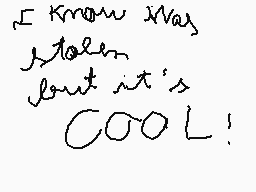 I know Was
stolen
but it's
COOL!